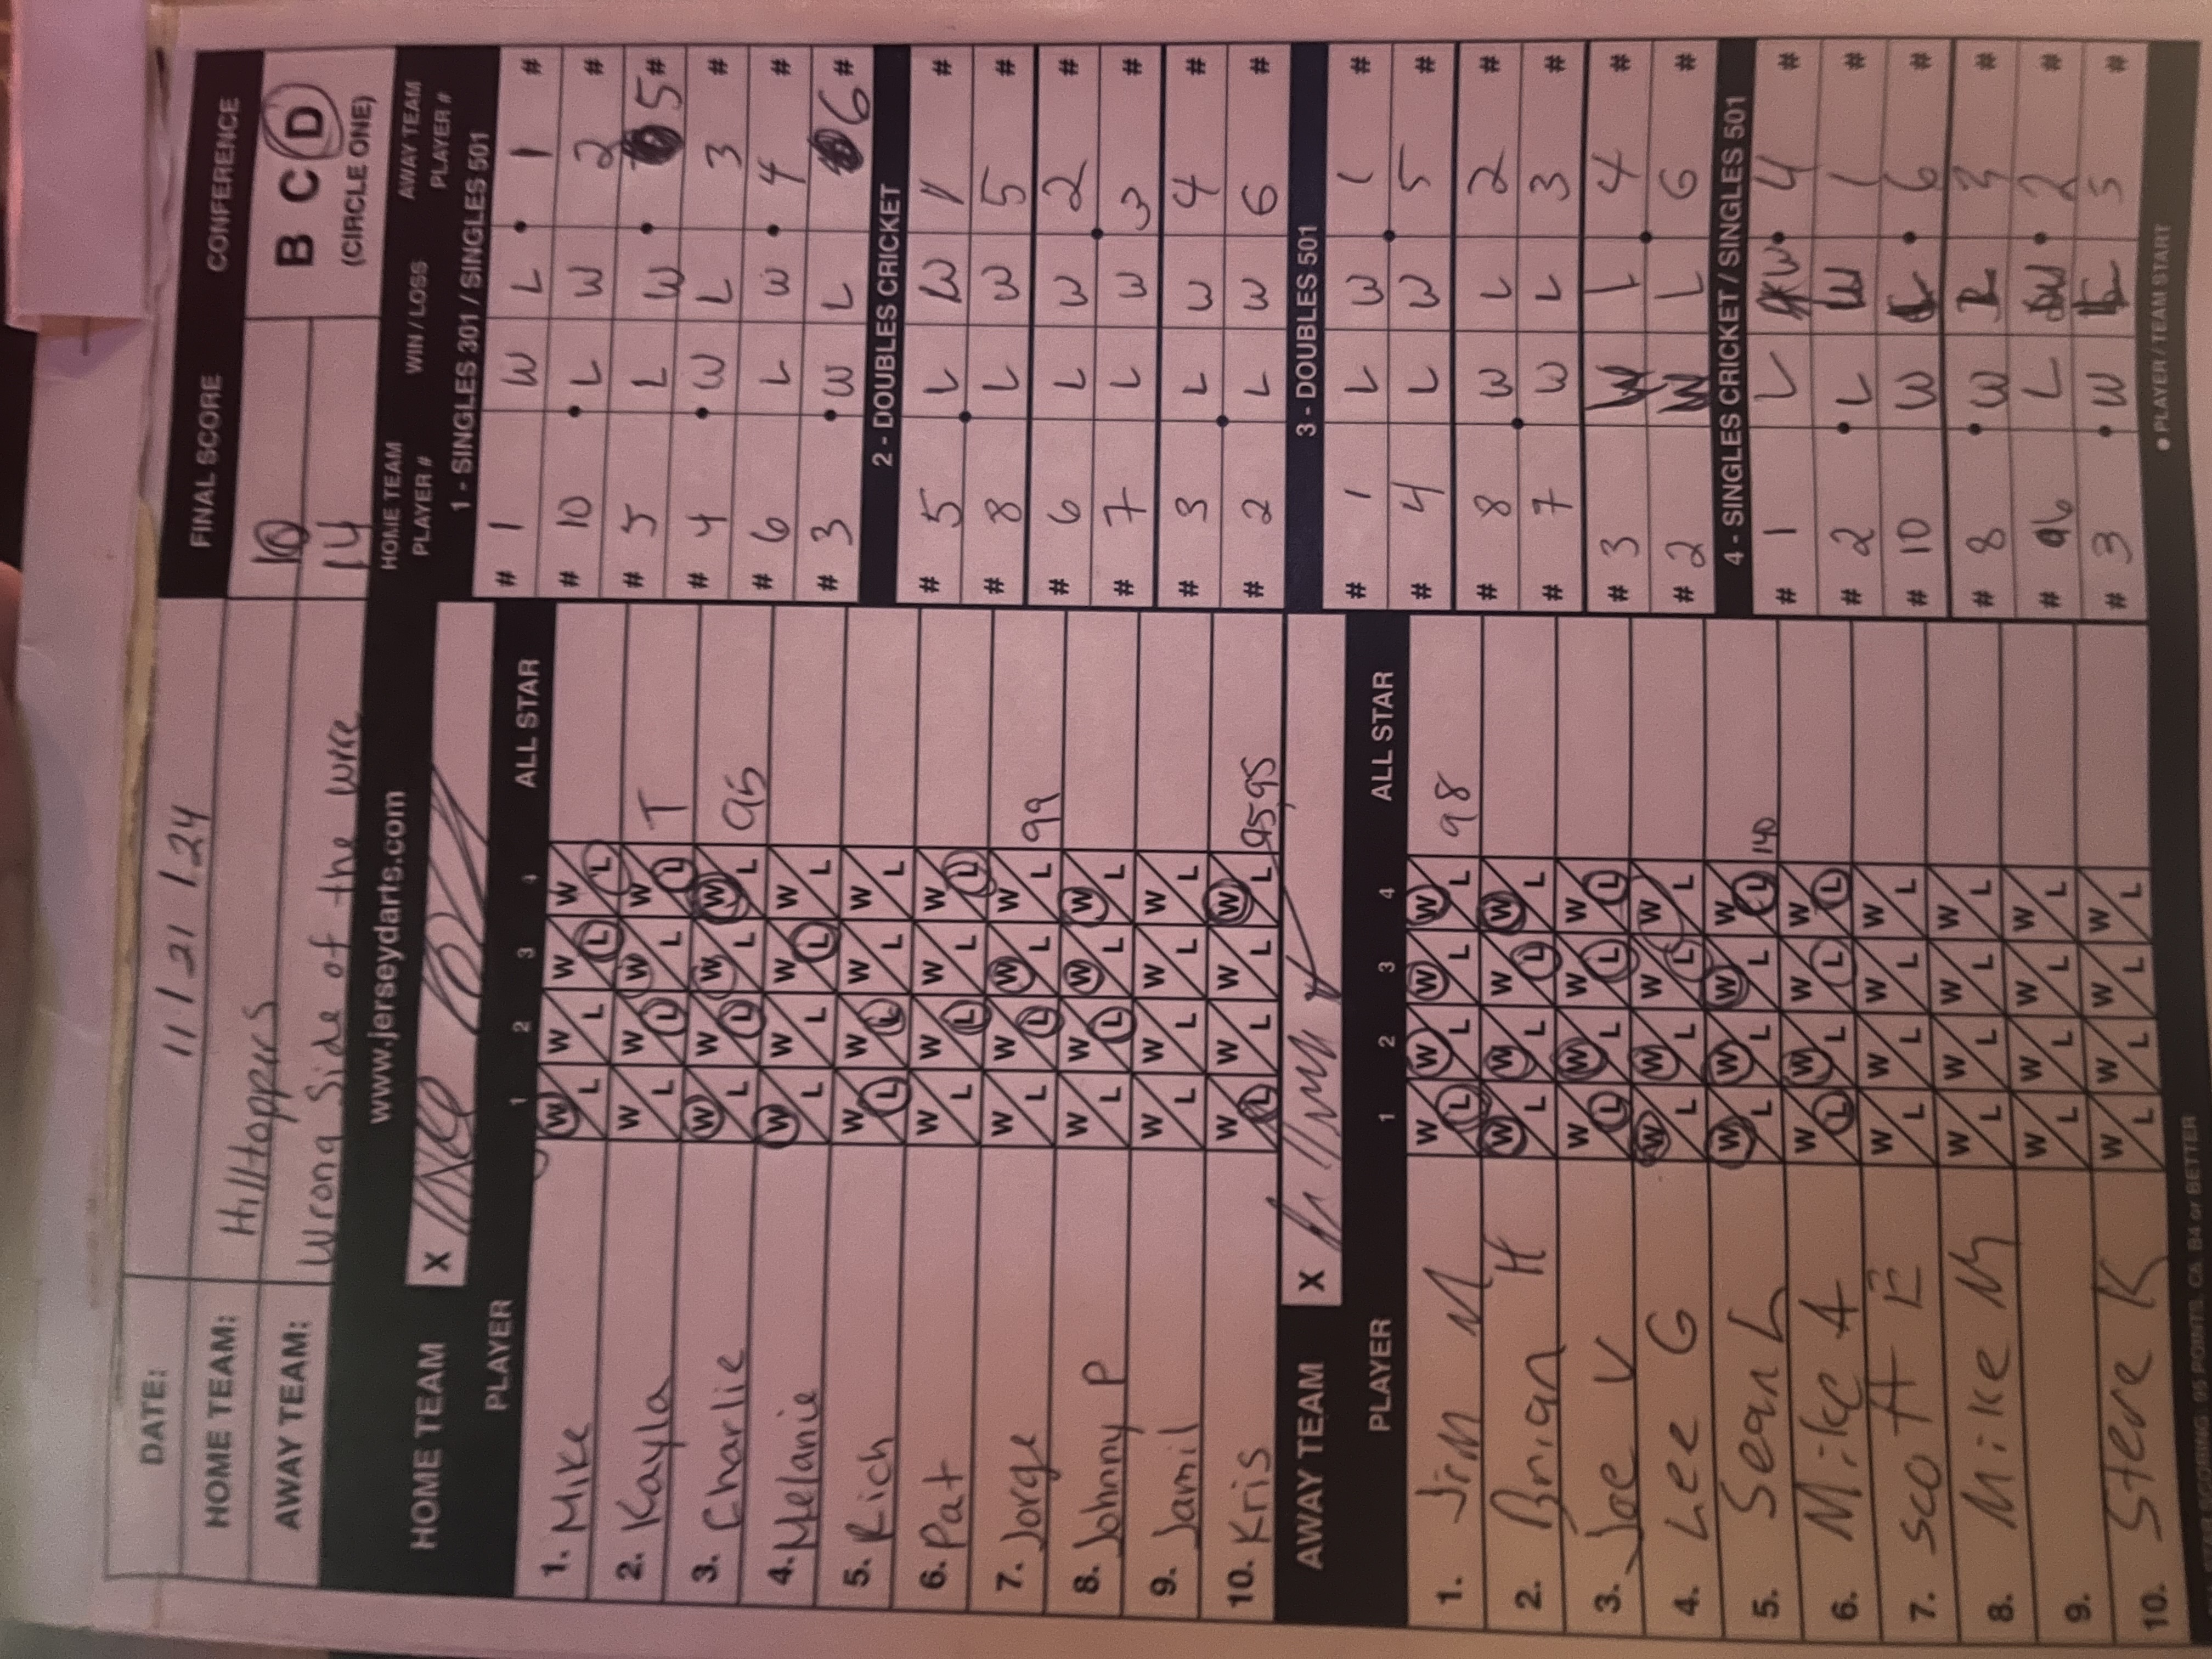 DATE: 11/21/24
HOME TEAM: Hilltoppers
AWAY TEAM: Wrong Side of the wire
FINAL SCORE
10
14
CONFERENCE
B C D
(CIRCLE ONE)
www.jerseydarts.com
HOME TEAM X
PLAYER 1 2 3 4 ALL STAR
1. Mike W L W L W L W L
2. Kayla W L W L W L W L T
3. Charlie W L W L W L W L 95
4. Melanie W L W L W L W L
5. Rich W L W L W L W L
6. Pat W L W L W L W L
7. Jorge W L W L W L W L 99
8. Johnny P W L W L W L W L
9. Jamil W L W L W L W L
10. Kris W L W L W L W L 95,95
AWAY TEAM X
PLAYER 1 2 3 4 ALL STAR
1. Jim M W L W L W L W L 98
2. Brian H W L W L W L W L
3. Joe V W L W L W L W L
4. Lee G W L W L W L W L
5. Sean L W L W L W L W L 140
6. Mike A W L W L W L W L
7. Scott E W L W L W L W L
8. Mike M W L W L W L W L
9. W L W L W L W L
10. Steve K W L W L W L W L
HOME TEAM PLAYER # WIN / LOSS AWAY TEAM PLAYER #
1 - SINGLES 301 / SINGLES 501
# 1 W L 1 #
# 10 L W 2 #
# 5 L W 5 #
# 4 W L 3 #
# 6 L W 4 #
# 3 W L 6 #
2 - DOUBLES CRICKET
# 5 L W 1 #
# 8 L W 5 #
# 6 L W 2 #
# 7 L W 3 #
# 3 L W 4 #
# 2 L W 6 #
3 - DOUBLES 501
# 1 L W 1 #
# 4 L W 5 #
# 8 W L 2 #
# 7 W L 3 #
# 3 W L 4 #
# 2 W L 6 #
4 - SINGLES CRICKET / SINGLES 501
# 1 L W 4 #
# 2 L W 1 #
# 10 W L 6 #
# 8 W L 3 #
# 6 L W 2 #
# 3 W L 5 #
• PLAYER / TEAM START